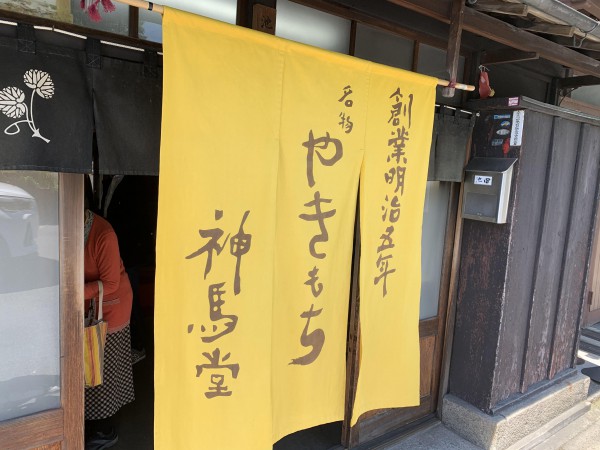 創業明治五年
名物
やきもち
神馬堂
池田